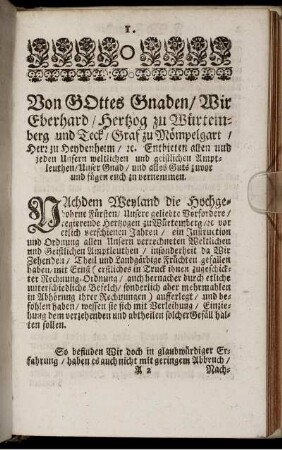 1.
Von GOttes Gnaden/ Wir
Eberhard/ Hertzog zu Würtem-
berg und Teck/ Graf zu Mömpelgart/
Herr zu Heydenheim/ ꝛc. Entbieten allen und
jeden Unsern weltlichen und geistlichen Ampt-
leuthen/ Unser Gnad/ und alles Guts zuvor
und fügen euch zu vernemmen.
NAchdem Weyland die Hochge-
bohrne Fürsten/ Unsere geliebte Vorfordere/
regierende Hertzogen zu Würtemberg/ ꝛc. vor
etlich verschienen Jahren/ ein Instruction
und Ordnung allen Unsern verrechneten Weltlichen
und Geistlichen Amptleuthen/ insonderheit da Wir
Zehenden/ Theil und Landgärbige Früchten gefallen
haben/ mit Ernst/ erstliches in Truck ihnen zugeschick-
ter Rechnung-Ordnung/ auch hernacher durch etliche
unterschiedliche Befelch/ sonderlich aber mehrmahlen
in Abhörung ihrer Rechnungen/ aufferlegt/ und be-
fohlen haben/ wessen sie sich mit Verleihung/ Einzie-
hung dem verzehenden und abtheilen solcher Gefäll hal-
ten sollen.
So befinden Wir doch in glaubwürdiger Er-
fahrung/ haben es auch nicht mit geringem Abbruch/
A a
Nach-